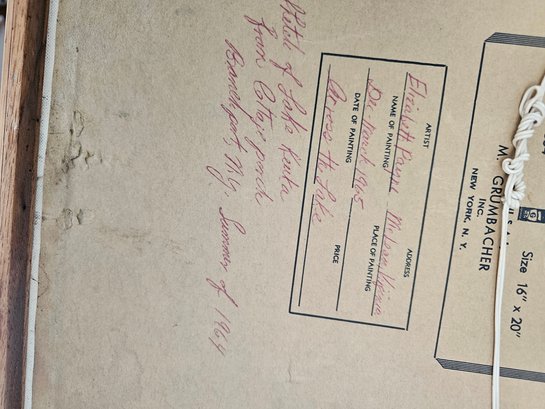 Size 16" x 20"
M. GRUMBACHER
INC.
NEW YORK, N. Y.
ARTIST ADDRESS
Elizabeth Payne McLean, Virginia
NAME OF PAINTING PLACE OF PAINTING
March 1965
DATE OF PAINTING PRICE
Across the Lake
Sketch of Lake Keuka
from Cottage porch
Branchport, N.Y. Summer of 1964